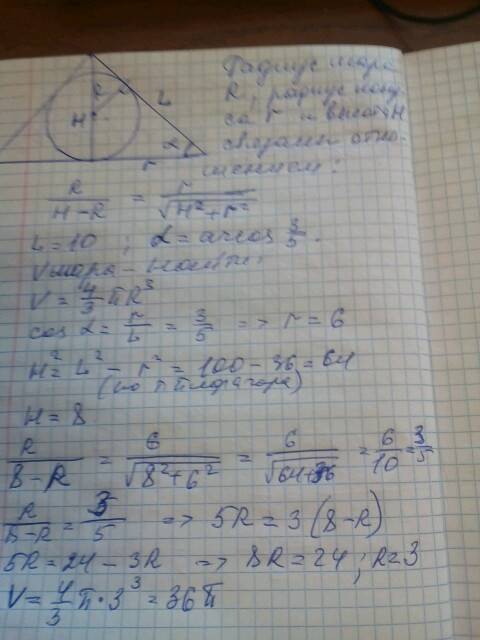 Радиус шара
R, радиус кону-
са r и высота H
связаны отно-
шением:
R
H
L
α
r
R/(H-R) = r/√(H²+r²)
L=10 ; α=arccos 3/5.
Vшара - найти.
V = 4/3 πR³
cos α = r/L = 3/5 => r = 6
H² = L² - r² = 100 - 36 = 64
(по т Пифагора)
H = 8
R/(8-R) = 6/√(8²+6²) = 6/√(64+36) = 6/10 = 3/5
R/(8-R) = 3/5 => 5R = 3(8-R)
5R = 24 - 3R => 8R = 24 ; R=3
V = 4/3 π·3³ = 36π